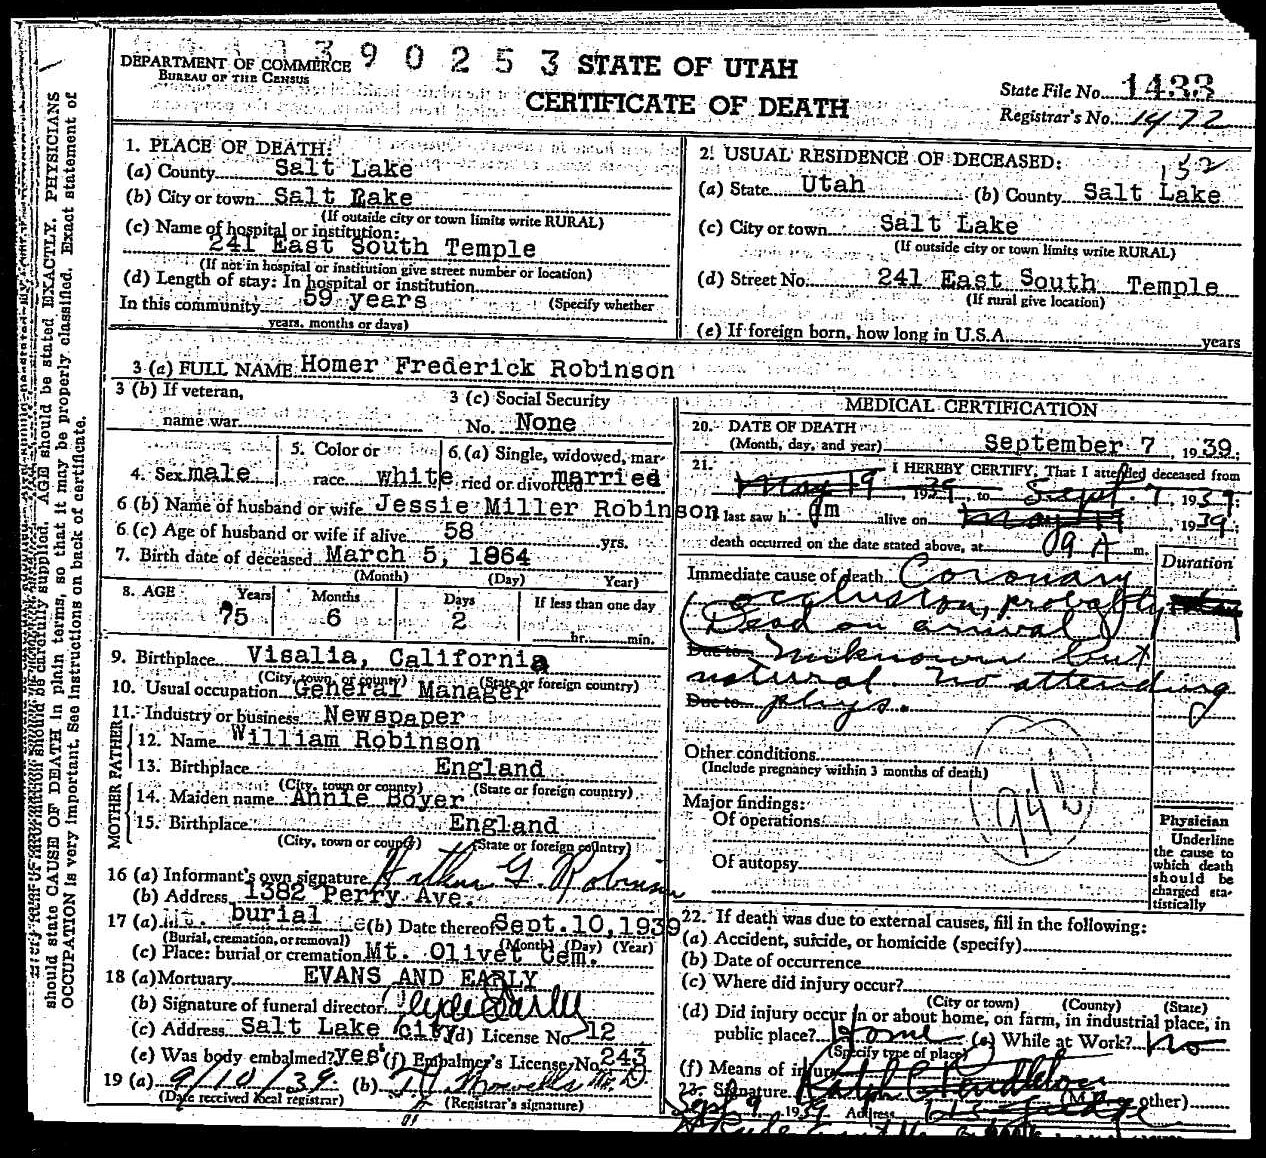 390253
DEPARTMENT OF COMMERCE
BUREAU OF THE CENSUS
STATE OF UTAH
CERTIFICATE OF DEATH
State File No. 1433
Registrar's No. 1472
1. PLACE OF DEATH:
(a) County Salt Lake
(b) City or town Salt Lake
(If outside city or town limits write RURAL)
(c) Name of hospital or institution:
241 East South Temple
(If not in hospital or institution give street number or location)
(d) Length of stay: In hospital or institution
In this community 59 years (Specify whether
years, months or days)
2. USUAL RESIDENCE OF DECEASED: 152
(a) State Utah (b) County Salt Lake
(c) City or town Salt Lake
(If outside city or town limits write RURAL)
(d) Street No. 241 East South Temple
(If rural give location)
(e) If foreign born, how long in U.S.A. years
3 (a) FULL NAME Homer Frederick Robinson
3 (b) If veteran,
name war
3 (c) Social Security
No. None
4. Sex male
5. Color or
race white
6. (a) Single, widowed, mar-
ried or divorced married
6 (b) Name of husband or wife Jessie Miller Robinson
6 (c) Age of husband or wife if alive 58 yrs.
7. Birth date of deceased March 5, 1864
(Month) (Day) Year)
8. AGE Years Months Days If less than one day
75 6 2 hr. min.
9. Birthplace Visalia, California
(City, town, or county) (State or foreign country)
10. Usual occupation General Manager
11. Industry or business Newspaper
FATHER
12. Name William Robinson
13. Birthplace England
(City, town or county) (State or foreign country)
MOTHER
14. Maiden name Annie Boyer
15. Birthplace England
(City, town or county) (State or foreign country)
16 (a) Informant's own signature Arthur G. Robinson
(b) Address 1382 Perry Ave.
17 (a) burial (b) Date thereof Sept. 10, 1939
(Burial, cremation, or removal) (Month) (Day) (Year)
(c) Place: burial or cremation Mt. Olivet Cem.
18 (a) Mortuary EVANS AND EARLY
(b) Signature of funeral director Clyde Early
(c) Address Salt Lake City (d) License No. 12
(e) Was body embalmed? yes (f) Embalmer's License No. 243
19 (a) 9/10/39 (b) M. D.
(Date received local registrar) (Registrar's signature)
MEDICAL CERTIFICATION
20. DATE OF DEATH
(Month, day, and year) September 7, 1939;
21. I HEREBY CERTIFY, That I attended deceased from
May 19, 1939, to Sept. 7 1939;
I last saw h im alive on May 19 1939;
death occurred on the date stated above, at 9 A m.
Duration
Immediate cause of death Coronary
occlusion, probably
(Dead on arrival)
Due to Unknown but
natural. No attending
Due to phys.
Other conditions
(Include pregnancy within 3 months of death)
94
Major findings:
Of operations
Of autopsy
Physician
Underline
the cause to
which death
should be
charged sta-
tistically
22. If death was due to external causes, fill in the following:
(a) Accident, suicide, or homicide (specify)
(b) Date of occurrence
(c) Where did injury occur?
(City or town) (County) (State)
(d) Did injury occur in or about home, on farm, in industrial place, in
public place? Home (e) While at Work? No
(Specify type of place)
(f) Means of injury
23. Signature Ralph C Pendleton (M.D. or other)
Sept 9 1939 Address
should state CAUSE OF DEATH in plain terms, so that it may be properly classified. Exact statement of
OCCUPATION is very important. See instructions on back of certificate.
be carefully supplied. AGE should be stated EXACTLY. PHYSICIANS